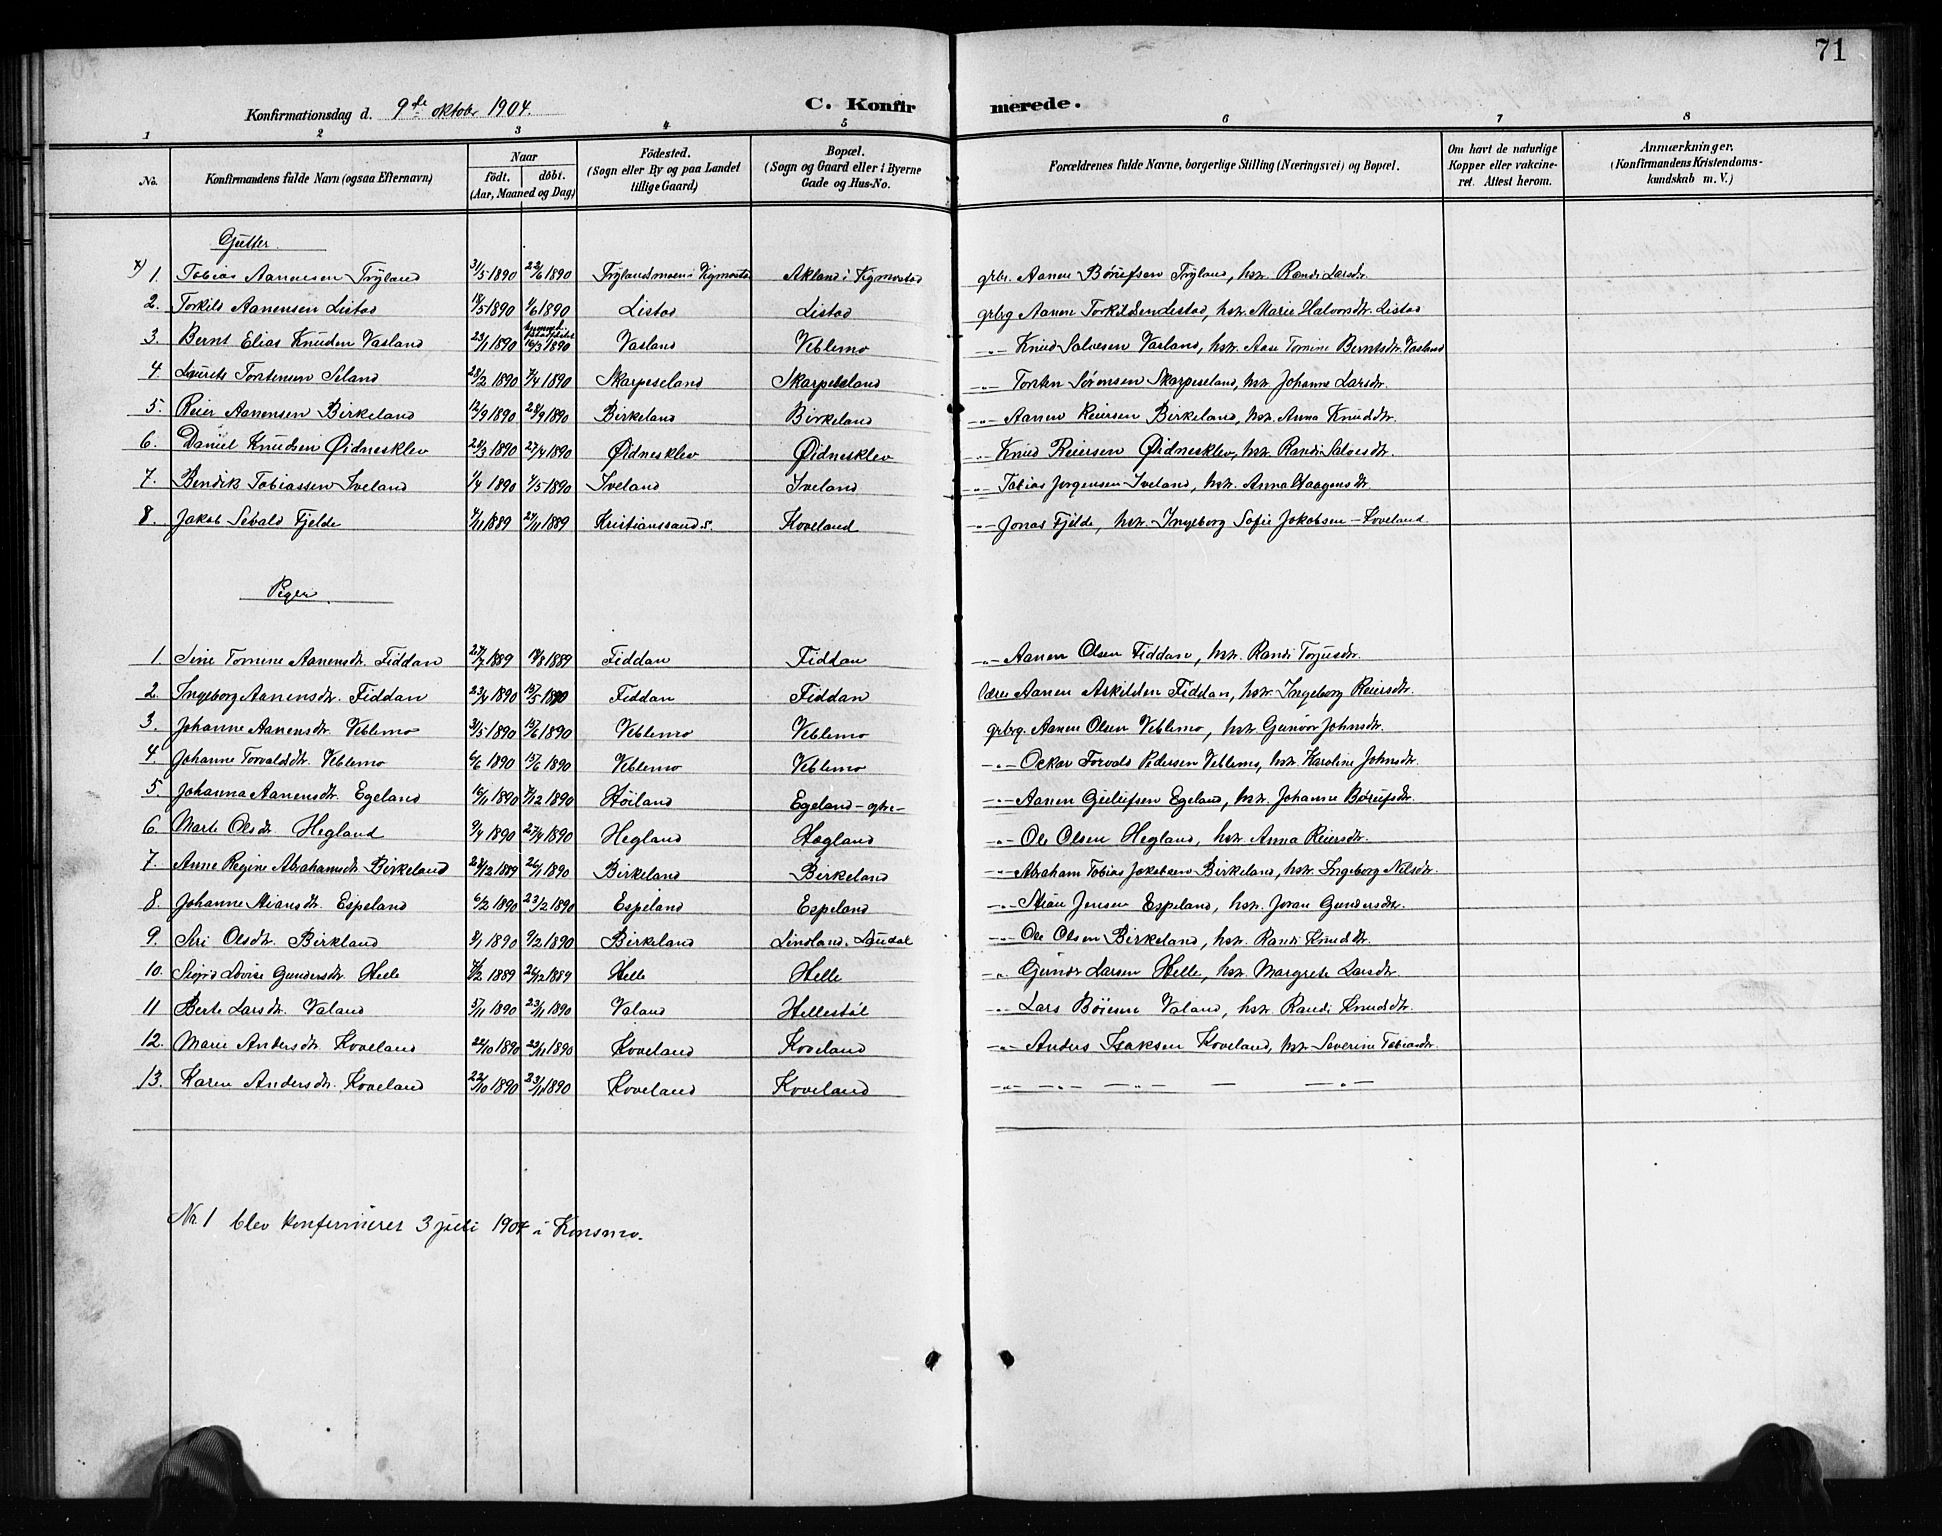 71
Konfirmationsdag d. 9de oktobr 1904. C. Konfirmerede.
1 2 3 4 5 6 7 8
No. Konfirmandens fulde Navn (ogsaa Efternavn) Naar født. døbt. (Aar, Maaned og Dag) Fødested. (Sogn eller By og paa Landet tillige Gaard) Bopæl. (Sogn og Gaard eller i Byerne Gade og Hus-No. Forældrenes fulde Navne, borgerlige Stilling (Næringsvei) og Bopæl. Om havt de naturlige Kopper eller vakcineret. Attest herom. Anmærkninger. (Konfirmandens Kristendomskundskab m. V.)
Gutter
x) 1. Tobias Aanensen Tryland 31/5 1890 22/6 1890 Trylandsmoen i Vigmostad Akland i Vigmostad grbr. Aanen Börufsen Tryland, hst. Randi Larsdtr.
2. Torkild Aanensen Listad 18/5 1890 1/6 1890 Listad Listad grbrg Aanen Torkildsen Listad, hst. Marie Halvorsdtr. Listad
3. Bernt Elias Knudsen Vasland 23/1 1890 16/3 1890 Vasland Veblemo -"- Knud Salvesen Vasland, hst. Aase Tomine Berntsdtr. Vasland
4. Laurits Torstensen Seland 23/2 1890 7/4 1890 Skarpeseland Skarpeseland -"- Torsten Sørensen Skarpeseland, hst. Johanne Larsdtr.
5. Reier Aanensen Birkeland 12/9 1890 28/9 1890 Birkeland Birkeland -"- Aanen Reiersen Birkeland, hst. Anna Knudsdtr.
6. Daniel Knudsen Øidnesklev 24/3 1890 27/4 1890 Øidnesklev Øidnesklev -"- Knud Reiersen Øidnesklev, hst. Randi Salvesdtr.
7. Bendik Tobiassen Iveland 1/4 1890 4/5 1890 Iveland Iveland -"- Tobias Jørgensen Iveland, hst. Anna Haagensdtr.
8. Jakob Sevald Fjelde 4/11 1889 24/11 1889 Kristianssand S. Koveland -"- Jonas Fjelde, hst. Ingeborg Sofie Jakobsen - Koveland.
Piger
1. Sine Tomine Aanensdtr. Fiddan 27/7 1889 18/8 1889 Fiddan Fiddan -"- Aanen Olsen Fiddan, hst. Randi Torjusdtr.
2. Ingeborg Aanensdtr. Fiddan 23/4 1890 15/5 1890 Fiddan Fiddan Aanen Askildsen Fiddan, hst. Ingeborg Reiersdtr.
3. Johanne Aanensdtr. Veblemo 31/5 1890 15/6 1890 Veblemo Veblemo grbrg. Aanen Olsen Veblemo, hst. Gunvor Johnsdtr.
4. Johanne Torvaldsdtr. Veblemo 6/6 1890 15/6 1890 Veblemo Veblemo -"- Oskar Torvald Pedersen Veblemo, hst. Karoline Johnsdtr.
5. Johanna Aanensdtr. Egeland 16/11 1890 7/12 1890 Høiland Egeland - -"- Aanen Guleifsen Egeland, hst. Johanne Børufsdtr.
6. Marte Olsdtr. Hegland 9/4 1890 27/4 1890 Hegland Hægland -"- Ole Olsen Hegland, hst. Anna Reiersdtr.
7. Anne Regine Abrahamsdtr. Birkeland 28/12 1889 26/1 1890 Birkeland Birkeland -"- Abraham Tobias Jakobsen Birkeland, hst. Ingeborg Nilsdtr.
8. Johanne Stiansdtr. Espeland 6/2 1890 23/2 1890 Espeland Espeland -"- Stian Jensen Espeland, hst. Joran Gundersdtr.
9. Siri Olsdtr. Birkland 8/1 1890 9/2 1890 Birkeland Lindland, Laudal -"- Ole Olsen Birkeland, hst. Randi Knudsdtr.
10. Sigrid Lovise Gundersdtr. Helle 4/12 1889 26/12 1889 Helle Helle -"- Gunder Larsen Helle, hst. Margrete Larsdtr.
11 Berte Larsdtr. Valand 5/11 1890 23/11 1890 Valand Hellestøl -"- Lars Böiesen Valand, hst. Randi Knudsdtr.
12. Marie Andersdtr. Koveland 22/10 1890 23/11 1890 Koveland Koveland -"- Anders Isaksen Koveland, hst. Severine Tobiasdtr.
13. Karen Andersdtr. Koveland 22/10 1890 23/11 1890 Koveland Koveland -"- -"- -"- - -"-
No. 1 blev konfirmeret 3 juli 1904 i Konsmo.